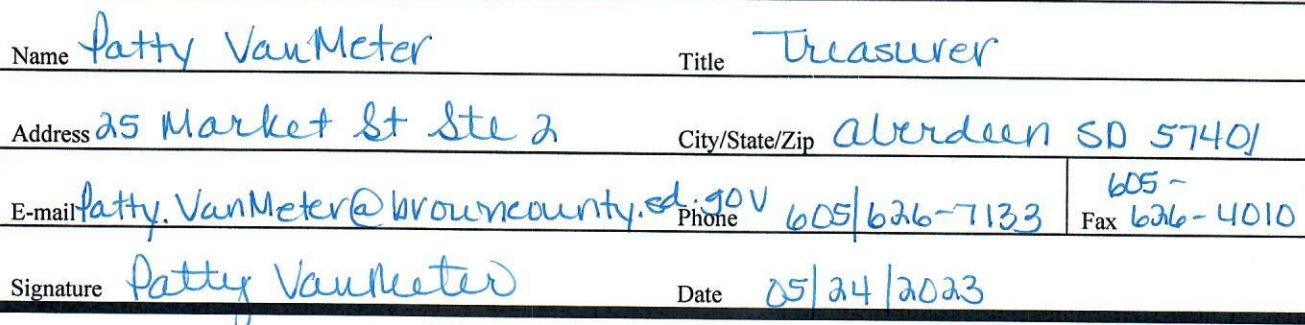 Name Patty VanMeter Title Treasurer
Address 25 Market St Ste 2 City/State/Zip Aberdeen SD 57401
E-mail Patty.VanMeter@browncounty.sd.gov Phone 605/626-7133 Fax 605-626-4010
Signature Patty VanMeter Date 05/24/2023